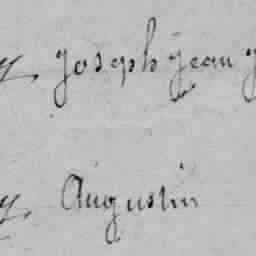 Joseph jean
Augustin